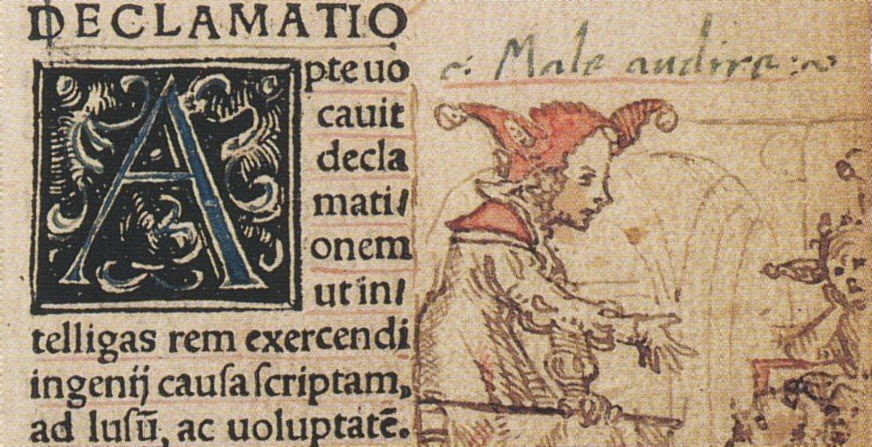 DECLAMATIO
Apte uo
cauit
decla
mati/
onem
ut in/
telligas rem exercendi
ingenij cauſa ſcriptam,
ad luſū, ac uoluptatē.
Male audire